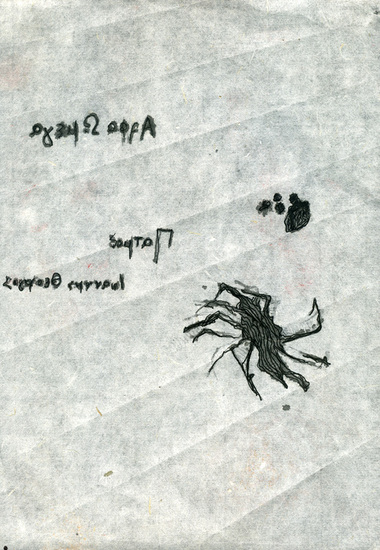 Αλφα Ωμεγα
Πατμος
Ιωαννης